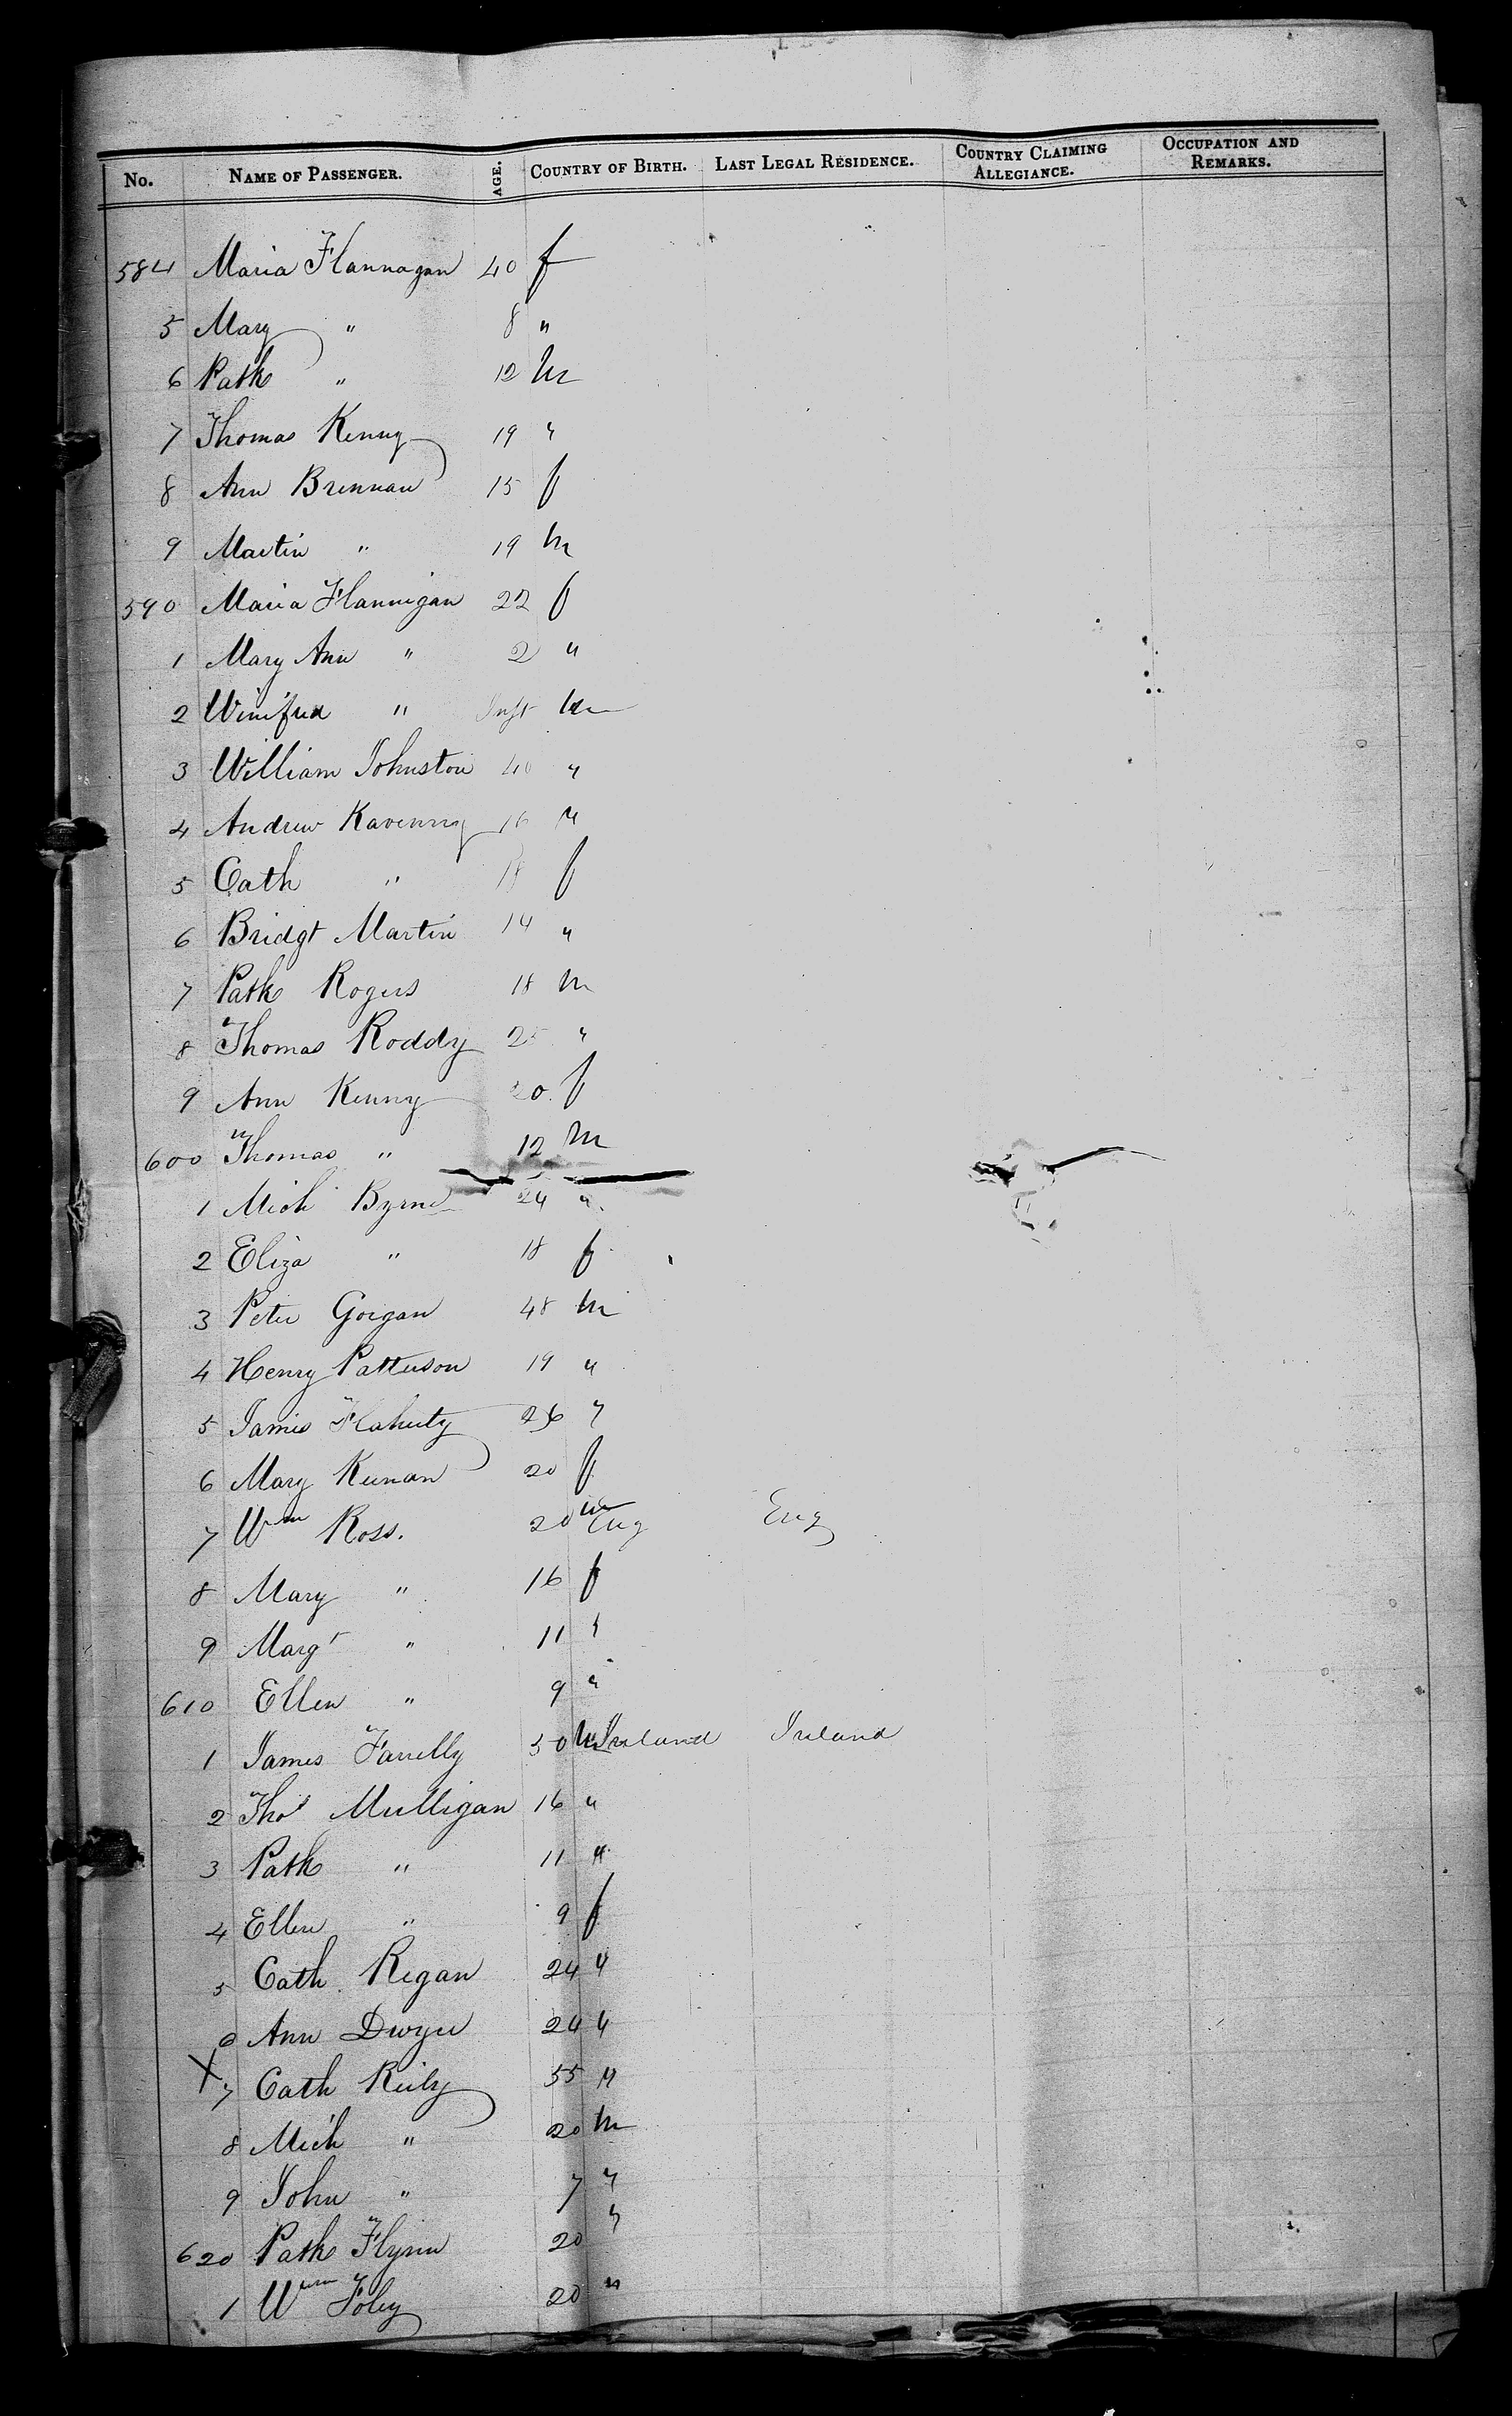 No. NAME OF PASSENGER. AGE. COUNTRY OF BIRTH. LAST LEGAL RESIDENCE. COUNTRY CLAIMING ALLEGIANCE. OCCUPATION AND REMARKS.
584 Maria Flannagan 40 f
5 Mary " 8 "
6 Patk " 12 m
7 Thomas Kenny 19 "
8 Ann Brennan 15 f
9 Martin " 19 m
590 Maria Flannigan 22 f
1 Mary Ann " 2 "
2 Winifred " Inft
3 William Johnston 40 "
4 Andrew Kavenny 16 "
5 Cath " 18 f
6 Bridgt Martin 14 "
7 Patk Rogers 18 m
8 Thomas Roddy 25 "
9 Ann Kenny 20 f
600 Thomas " 12 m
1 Mich Byrne 24 "
2 Eliza " 18 f
3 Peter Gorgan 48 m
4 Henry Patterson 19 "
5 James Flaherty 26 "
6 Mary Keenan 20 f
7 Wm Ross. 20 m Eng Eng
8 Mary " 16 f
9 Margt " 11 "
610 Ellen " 9 "
1 James Farrelly 50 m Ireland Ireland
2 Thos Mulligan 16 "
3 Patk " 11 "
4 Ellen " 9 f
5 Cath Regan 24 "
6 Ann Dwyer 24 "
X 7 Cath Reily 55 "
8 Mich " 20 m
9 John " 7 "
620 Patk Flynn 20 "
1 Wm Foley 20 "